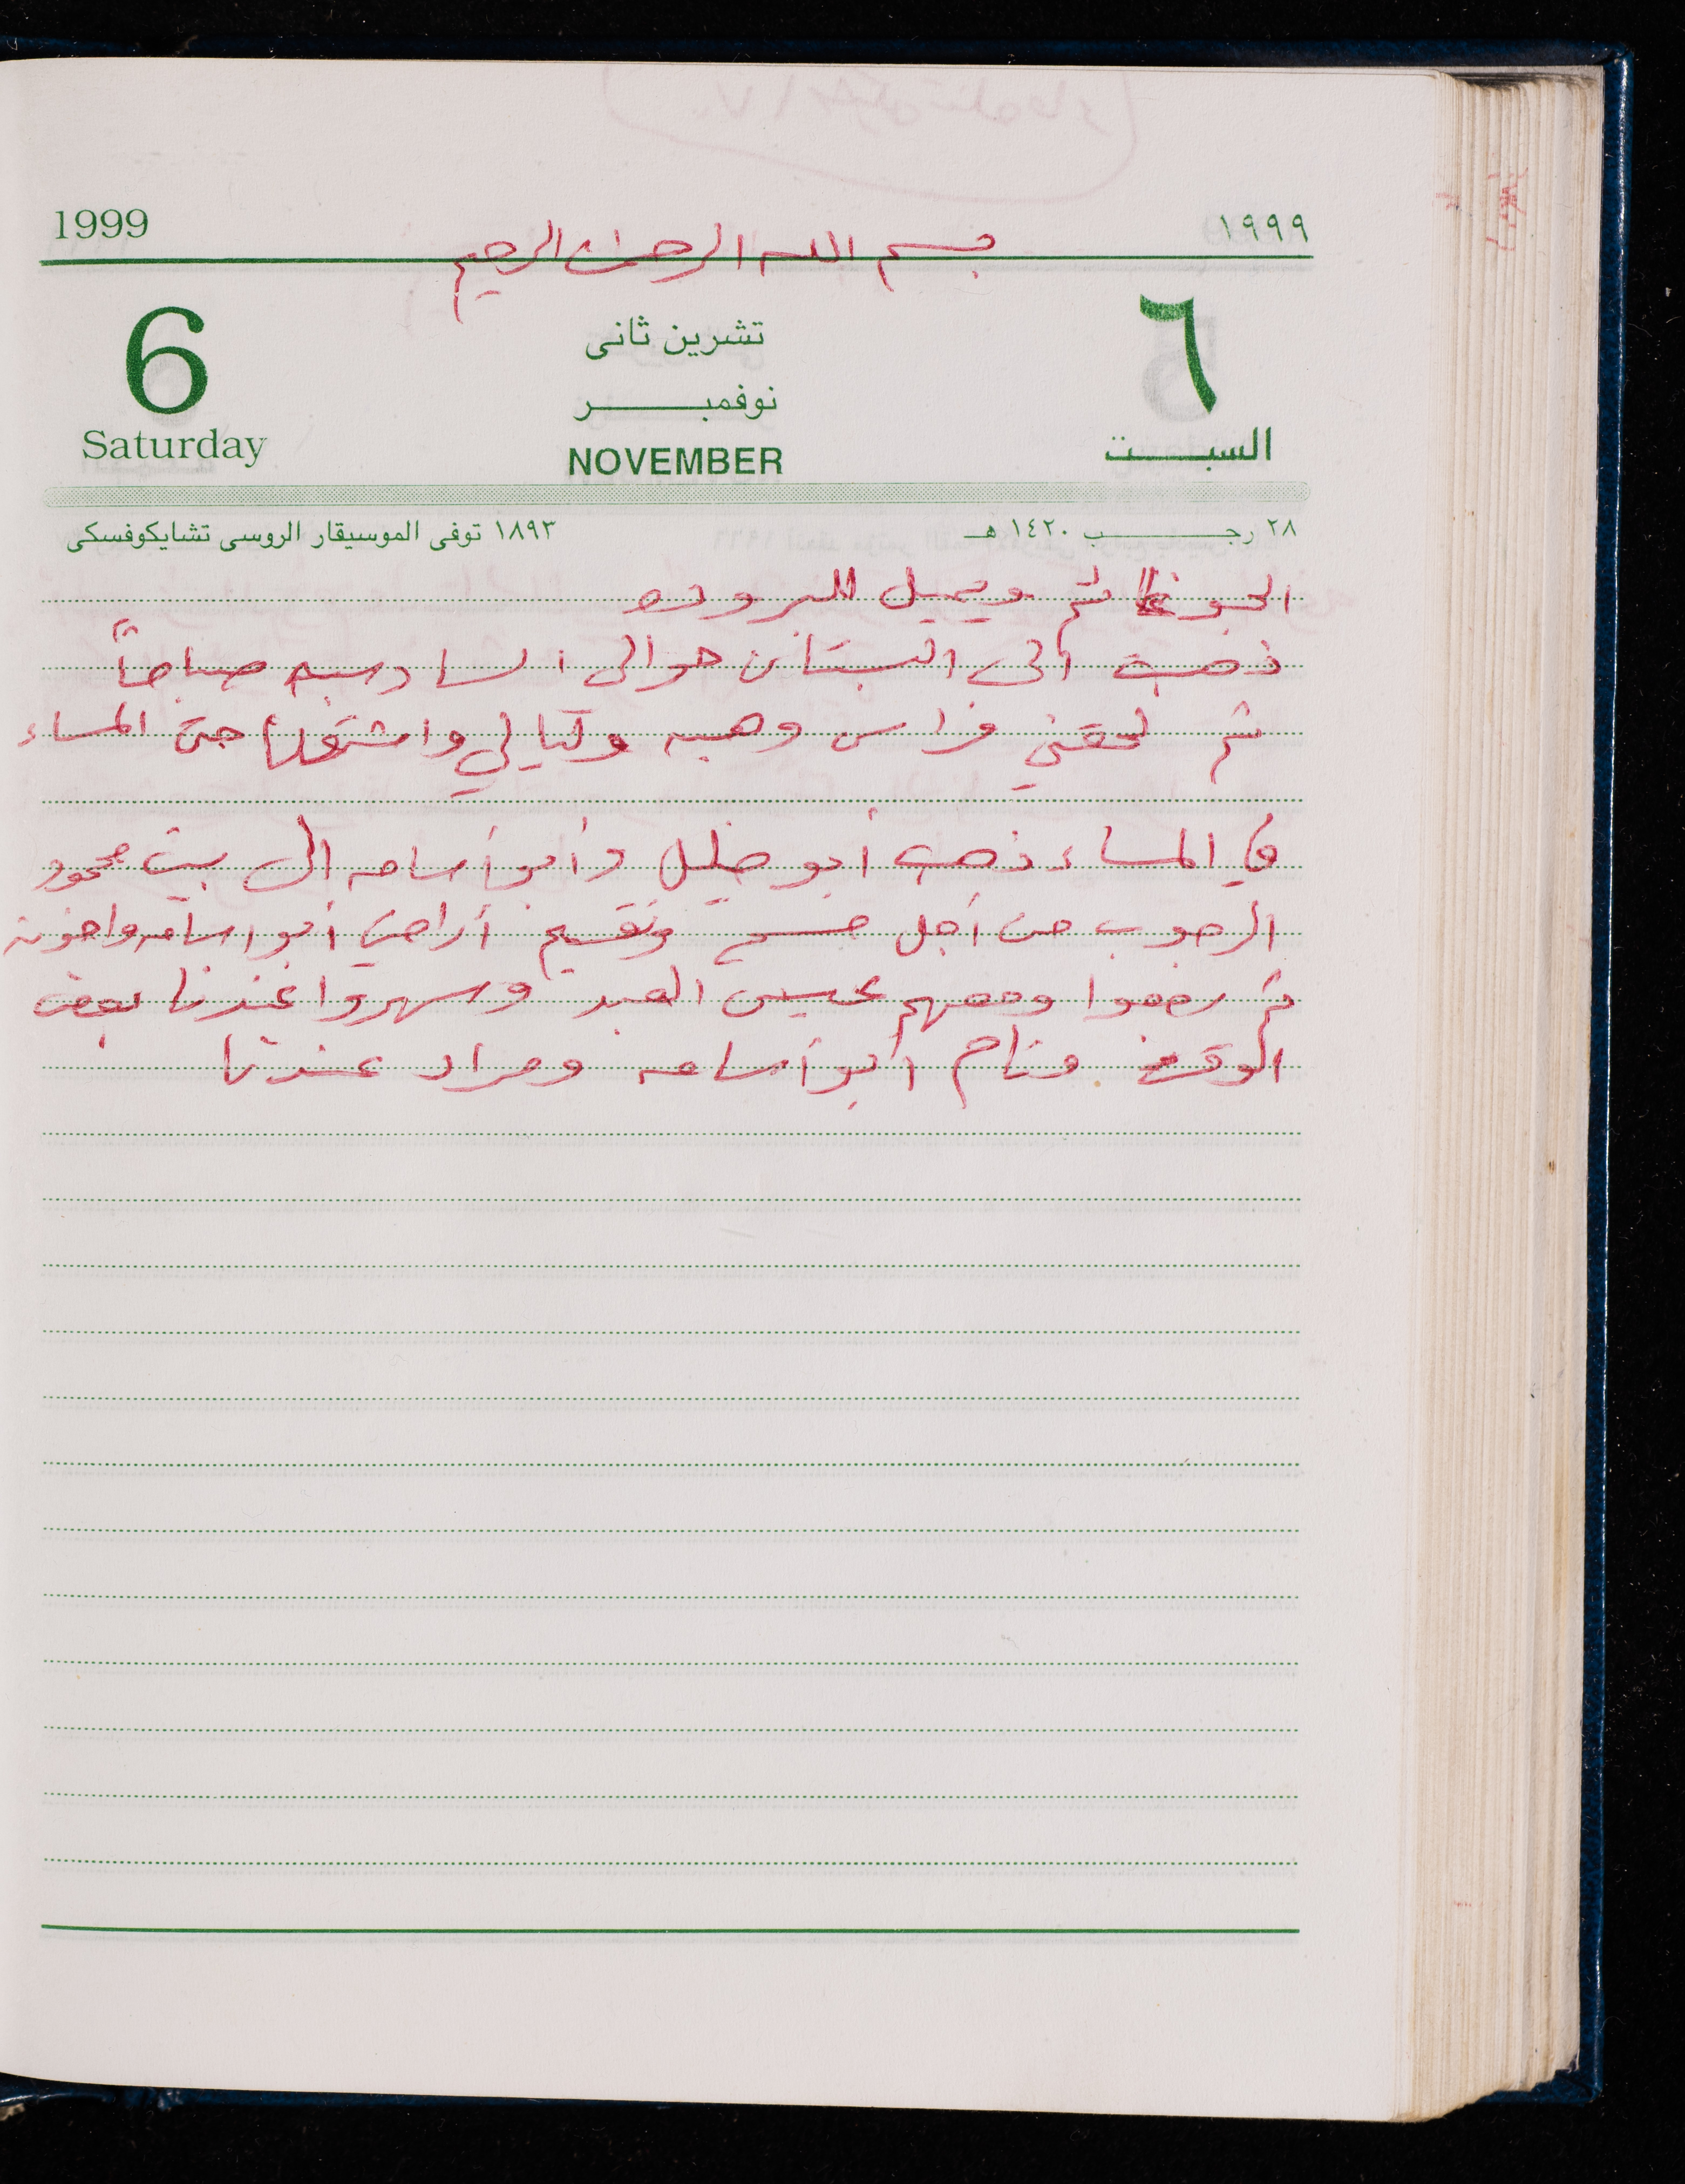 1999 ١٩٩٩
بسم الله الرحمن الرحيم
6 تشرين ثانى ٦
نوفمبر
Saturday NOVEMBER السبت
٢٨ رجب ١٤٢٠ هـ ١٨٩٣ توفى الموسيقار الروسى تشايكوفسكى
الجو غائم ويميل للبروده
ذهبت الى البستان حوالي السادسه صباحاً
ثم لحقني فراس وهبه وليالي واشتغلنا حتى المساء
في المساء ذهب أبو خليل وأبو أسامه الى بيت محمود
الرجوب من أجل مسح وتقسيم أراضي أبو اسامه واخوته
ثم رجعوا ومعهم عيسى العبد وسهروا عندنا بعض
الوقت ونام أبو أسامه ومراد عندنا